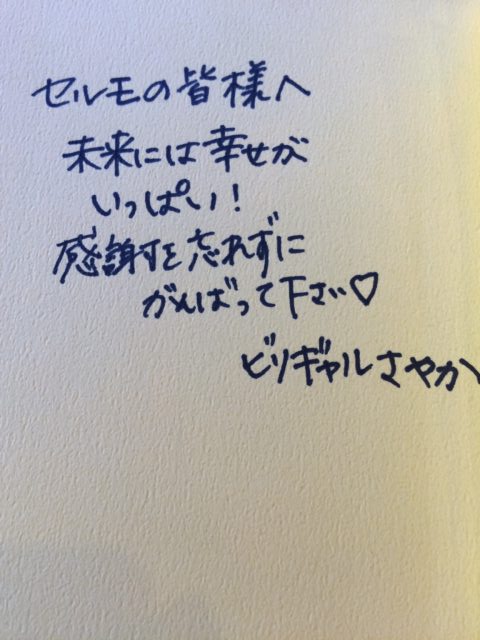 セルモの皆様へ
未来には幸せが
いっぱい!
感謝を忘れずに
がんばって下さい♡
ビリギャルさやか